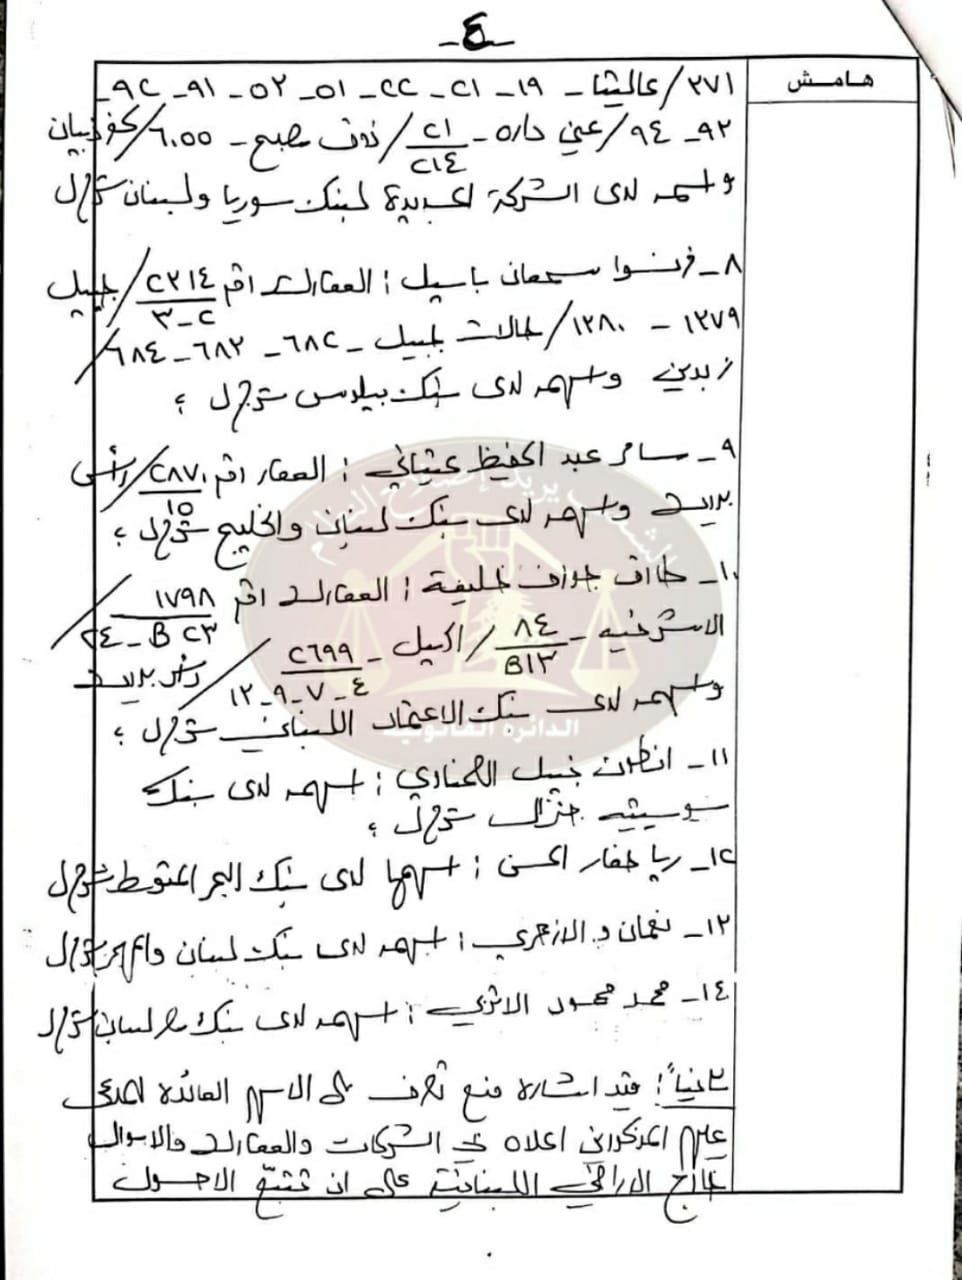 -٤-
هامش
٢٧١/عاليتا - ١٩ - ٢١ - ٢٢ - ٥١ - ٥٢ - ٩١ - ٩٢ -
٩٣ - ٩٤/عين داره - ٢١/٢١٤ ذوق مصبح - ٦٠٥٥/كفرذبيان
واسهمه لدى الشركة الجديدة لبنك سوريا ولبنان ش.م.ل
٨- فرنسوا سمعان باسيل : العقارات رقم ٢٣١٤/٣-٢ جبيل
١٢٧٩ - ١٢٨٠/حالات جبيل - ٦٨٢ - ٦٨٣ - ٦٨٤/
زبدين واسهمه لدى بنك بيبلوس ش.م.ل ؛
٩- سامر عبد الحفيظ عيتاني : العقار رقم ٢٨٧٠/١٥ رأس
بيروت واسهمه لدى بنك لبنان والخليج ش.م.ل ؛
١٠- طارق جوزف خليفة : العقارات رقم ١٧٩٨/٢٤-B٢٣
الاشرفيه - ٨٤/B١٣ اكبيل - ٢٦٩٩/٤-٧-٩-١٢ رأس بيروت
واسهمه لدى بنك الاعتماد اللبناني ش.م.ل ؛
الدائرة القانونية
١١- انطون نبيل الصحناوي : اسهمه لدى بنك
سوسيته جنرال ش.م.ل ؛
١٢- ريا حفار الحسن : اسهمها لدى بنك البحر المتوسط ش.م.ل
١٣- نعمان و. الازهري : اسهمه لدى بنك لبنان والمهجر ش.م.ل
١٤- محمد محمود الاتربي : اسهمه لدى بنك مصر لبنان ش.م.ل
ثانياً: قيد اشارة منع تصرف على الاسهم العائدة للمدعى
عليهم المذكورين اعلاه في الشركات والعقارات والاموال
خارج الاراضي اللبنانية على ان تتبع الاصول